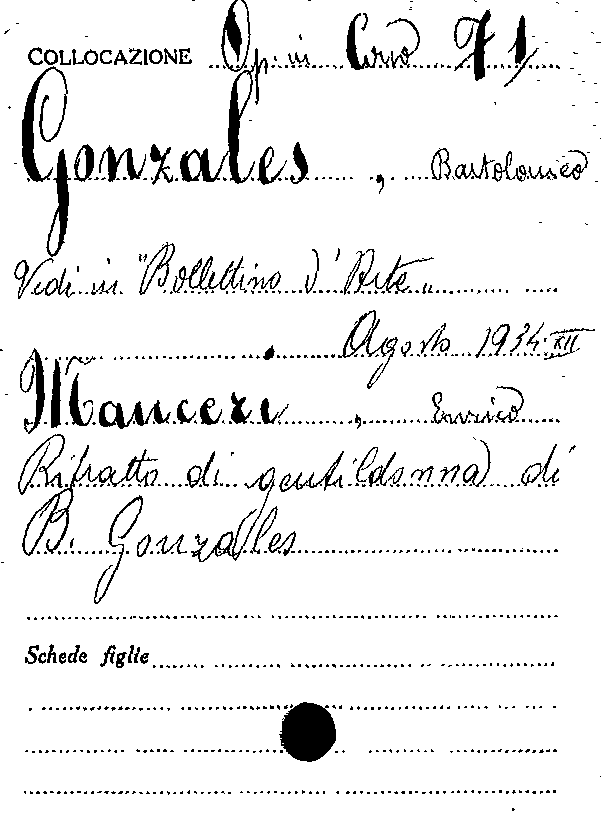 COLLOCAZIONE Op. in Corso F 1
Gonzales, Bartolomeo
Vedi in "Bollettino d'Arte"
Agosto 1934·XII
Mauceri, Enrico
Ritratto di gentildonna di
B. Gonzales
Schede figlie